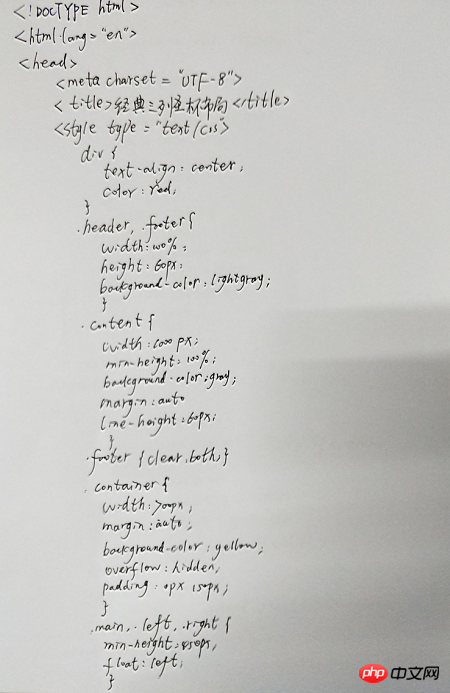 <!DOCTYPE html>
<html lang="en">
<head>
<meta charset="UTF-8">
<title>经典三列布局</title>
<style type="text/css">
div {
text-align: center;
color: red;
}
.header, .footer {
width: 100%;
height: 60px;
background-color: lightgray;
}
.content {
width: 1000px;
min-height: 100%;
background-color: gray;
margin: auto
line-height: 60px;
}
.footer {clear: both;}
.container {
width: 700px;
margin: auto;
background-color: yellow;
overflow: hidden;
padding: 0px 150px;
}
.main, .left, .right {
min-height:
float: left;
}
php 中文网